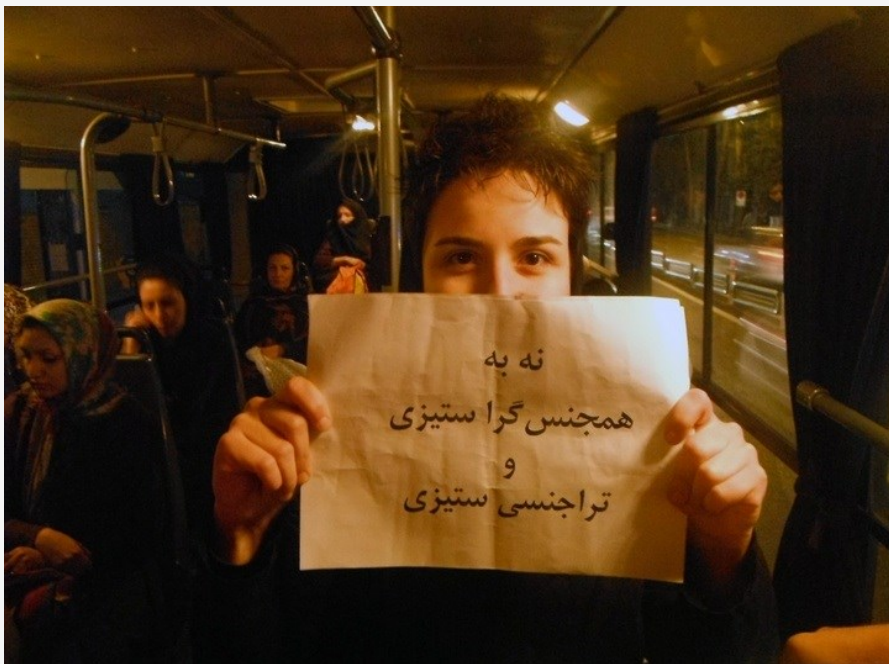 نه به
همجنس‌گرا ستیزی
و
تراجنسی ستیزی